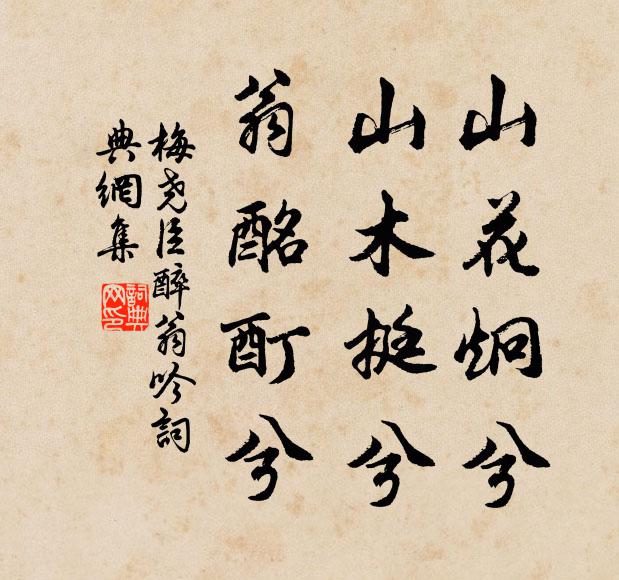 山花炯兮
山木挺兮
翁酩酊兮
梅尧臣醉翁吟詞
典網集
詞典网印